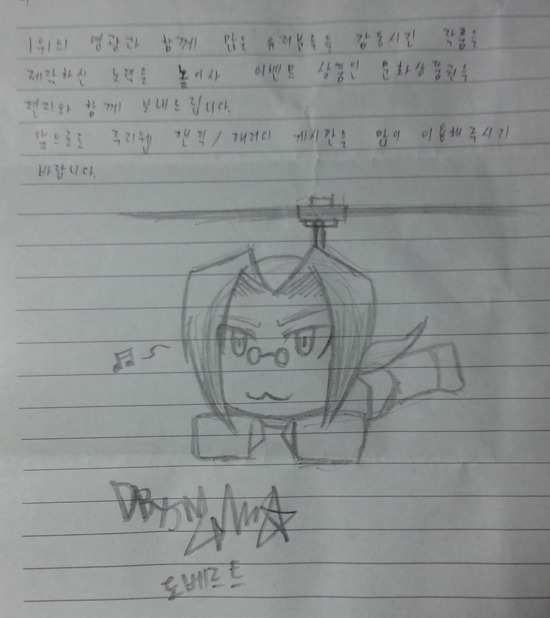 1위의 영광과 함께 많은 유저분들을 감동시킨 작품을
제작하신 노력을 높이사 이벤트 상품인 문화상품권을
편지와 함께 보내드립니다.
앞으로도 루리웹 게시판을 많이 이용해주시기
바랍니다.